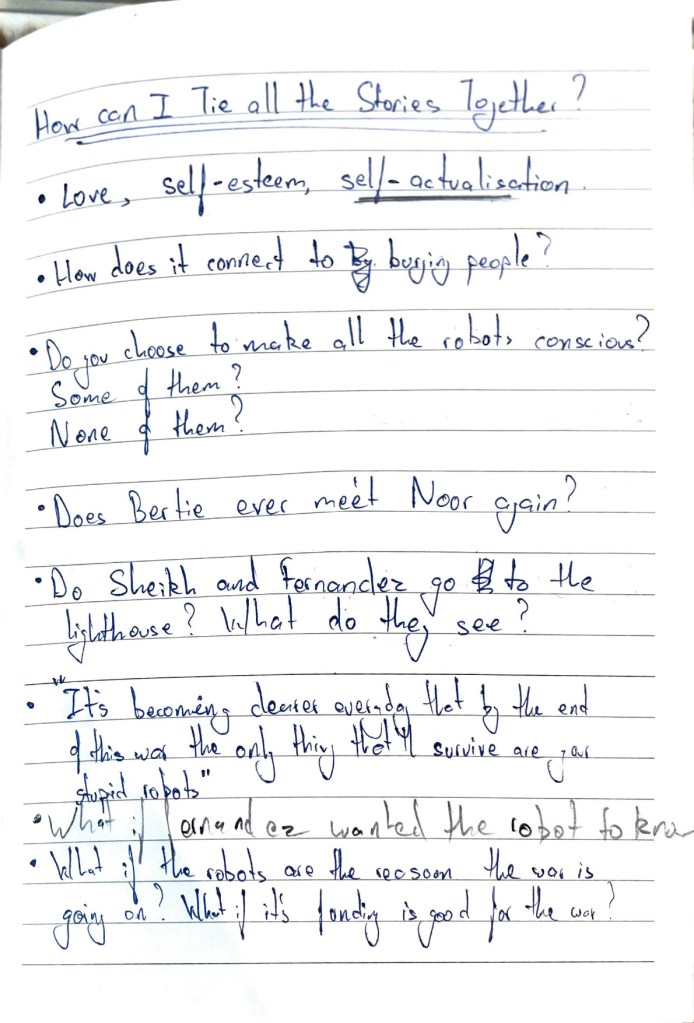 How can I Tie all the Stories Together?
• Love, self-esteem, self-actualisation.
• How does it connect to burying people?
• Do you choose to make all the robots conscious?
Some of them?
None of them?
• Does Bertie ever meet Noor again?
• Do Sheikh and Fernandez go to the
lighthouse? What do they see?
• "It's becoming clearer everyday that by the end
of this war the only thing that'll survive are your
stupid robots"
• What if Fernandez wanted the robot to know
• What if the robots are the reason the war is
going on? What if it's funding is good for the war?